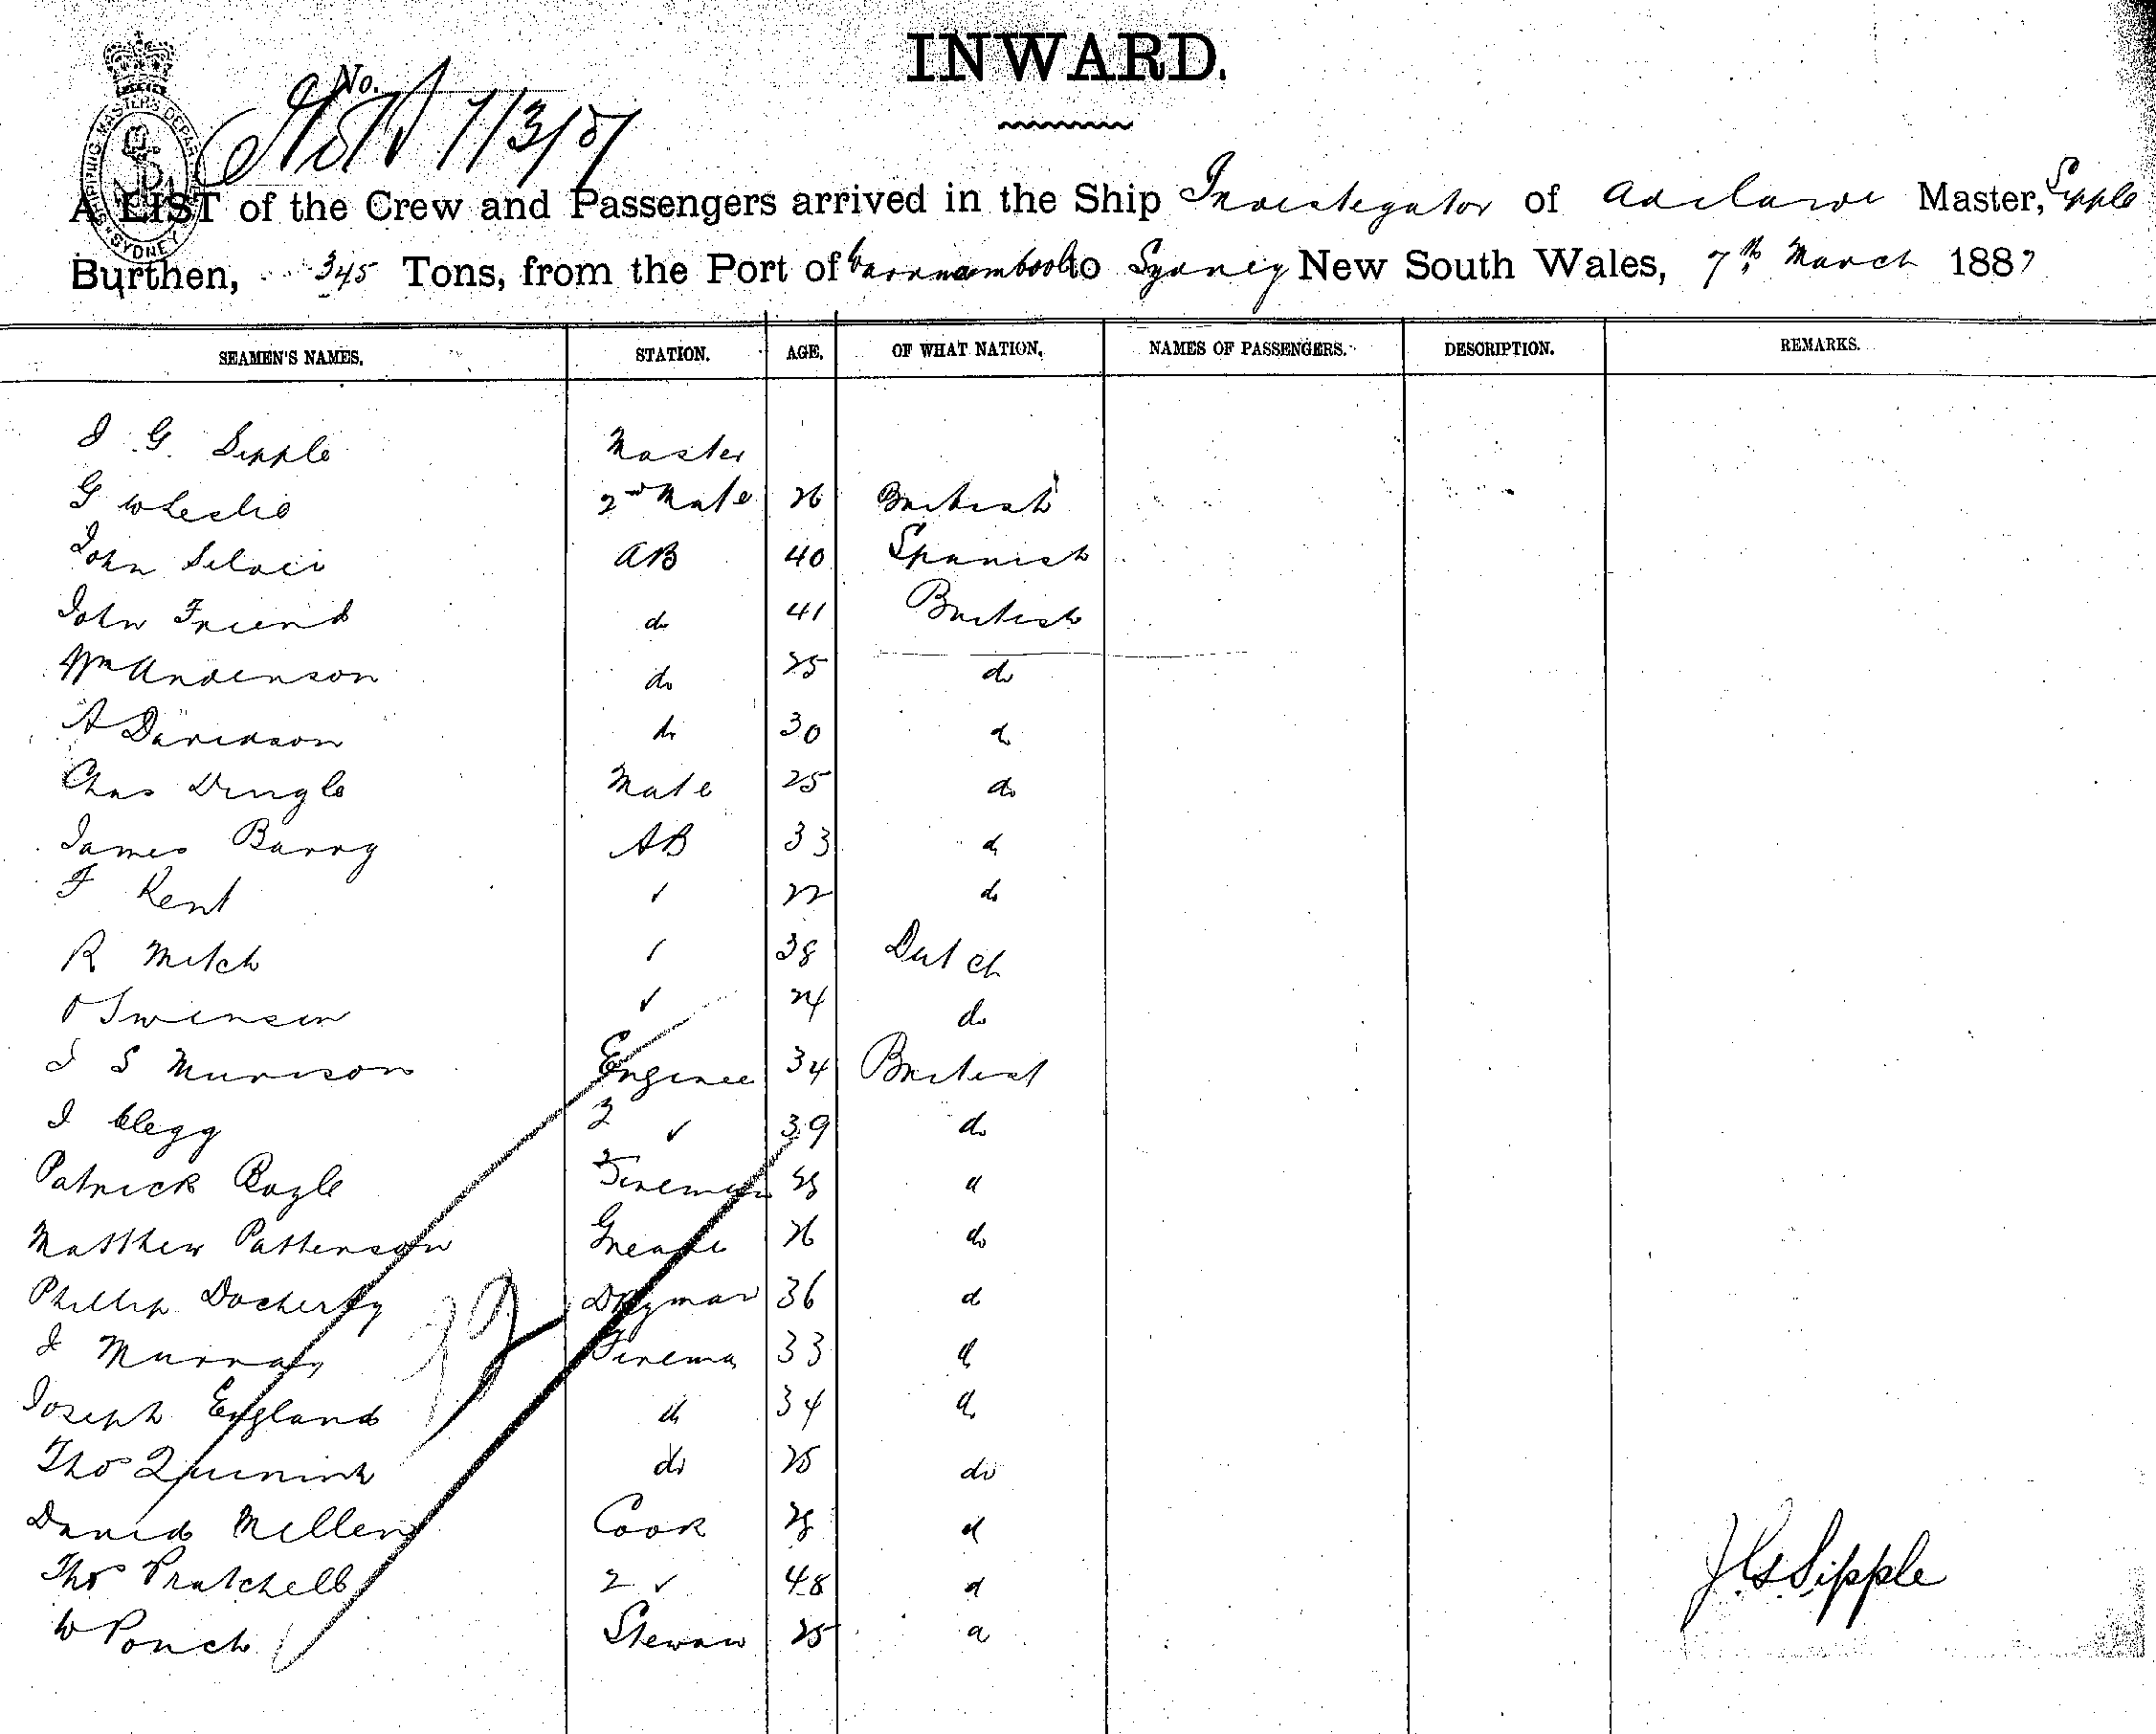 INWARD.
No.
7/3/87
SHIPPING MASTERS DEPAR
SYDNEY
A LIST of the Crew and Passengers arrived in the Ship Investigator of Adelaide Master, Sipple
Burthen, 345 Tons, from the Port of Warrnambool to Sydney New South Wales, 7th March 1887
SEAMEN'S NAMES. STATION. AGE. OF WHAT NATION. NAMES OF PASSENGERS. DESCRIPTION. REMARKS.
J G Sipple Master
G W Leslie 2nd Mate 26 British
John AB 40 Spanish
John Friend do 41 British
Wm Anderson do 25 do
A Davidson do 30 do
Chas Dingle Mate 25 do
James Barry AB 33 do
F Kent ✓ 22 do
R Mitch ✓ 38 Dutch
O Swensen ✓ 24 do
J S Murison Enginee 34 British
J Clegg 2 ✓ 39 do
Patrick Boyle Fireman 28 d
Matthew Patterson Grease 26 do
Phillip Docherty 36 d
J Murray Firema 33 d
Joseph England do 34 d
Thos do 25 do
David Miller Cook 28 d
Thos Pratchell 2 ✓ 48 d
W Ponch Stewaw 25 a
J G Sipple